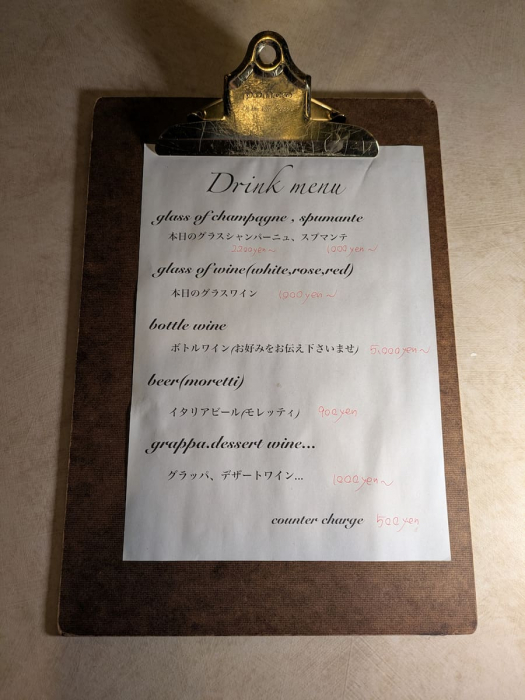 Drink menu
glass of champagne , spumante
本日のグラスシャンパーニュ、スプマンテ
2200yen〜 1000yen〜
glass of wine(white,rose,red)
本日のグラスワイン 1000yen〜
bottle wine
ボトルワイン(お好みをお伝え下さいませ) 5,000yen〜
beer(moretti)
イタリアビール(モレッティ) 900yen
grappa.dessert wine...
グラッパ、デザートワイン... 1000yen〜
counter charge 500yen